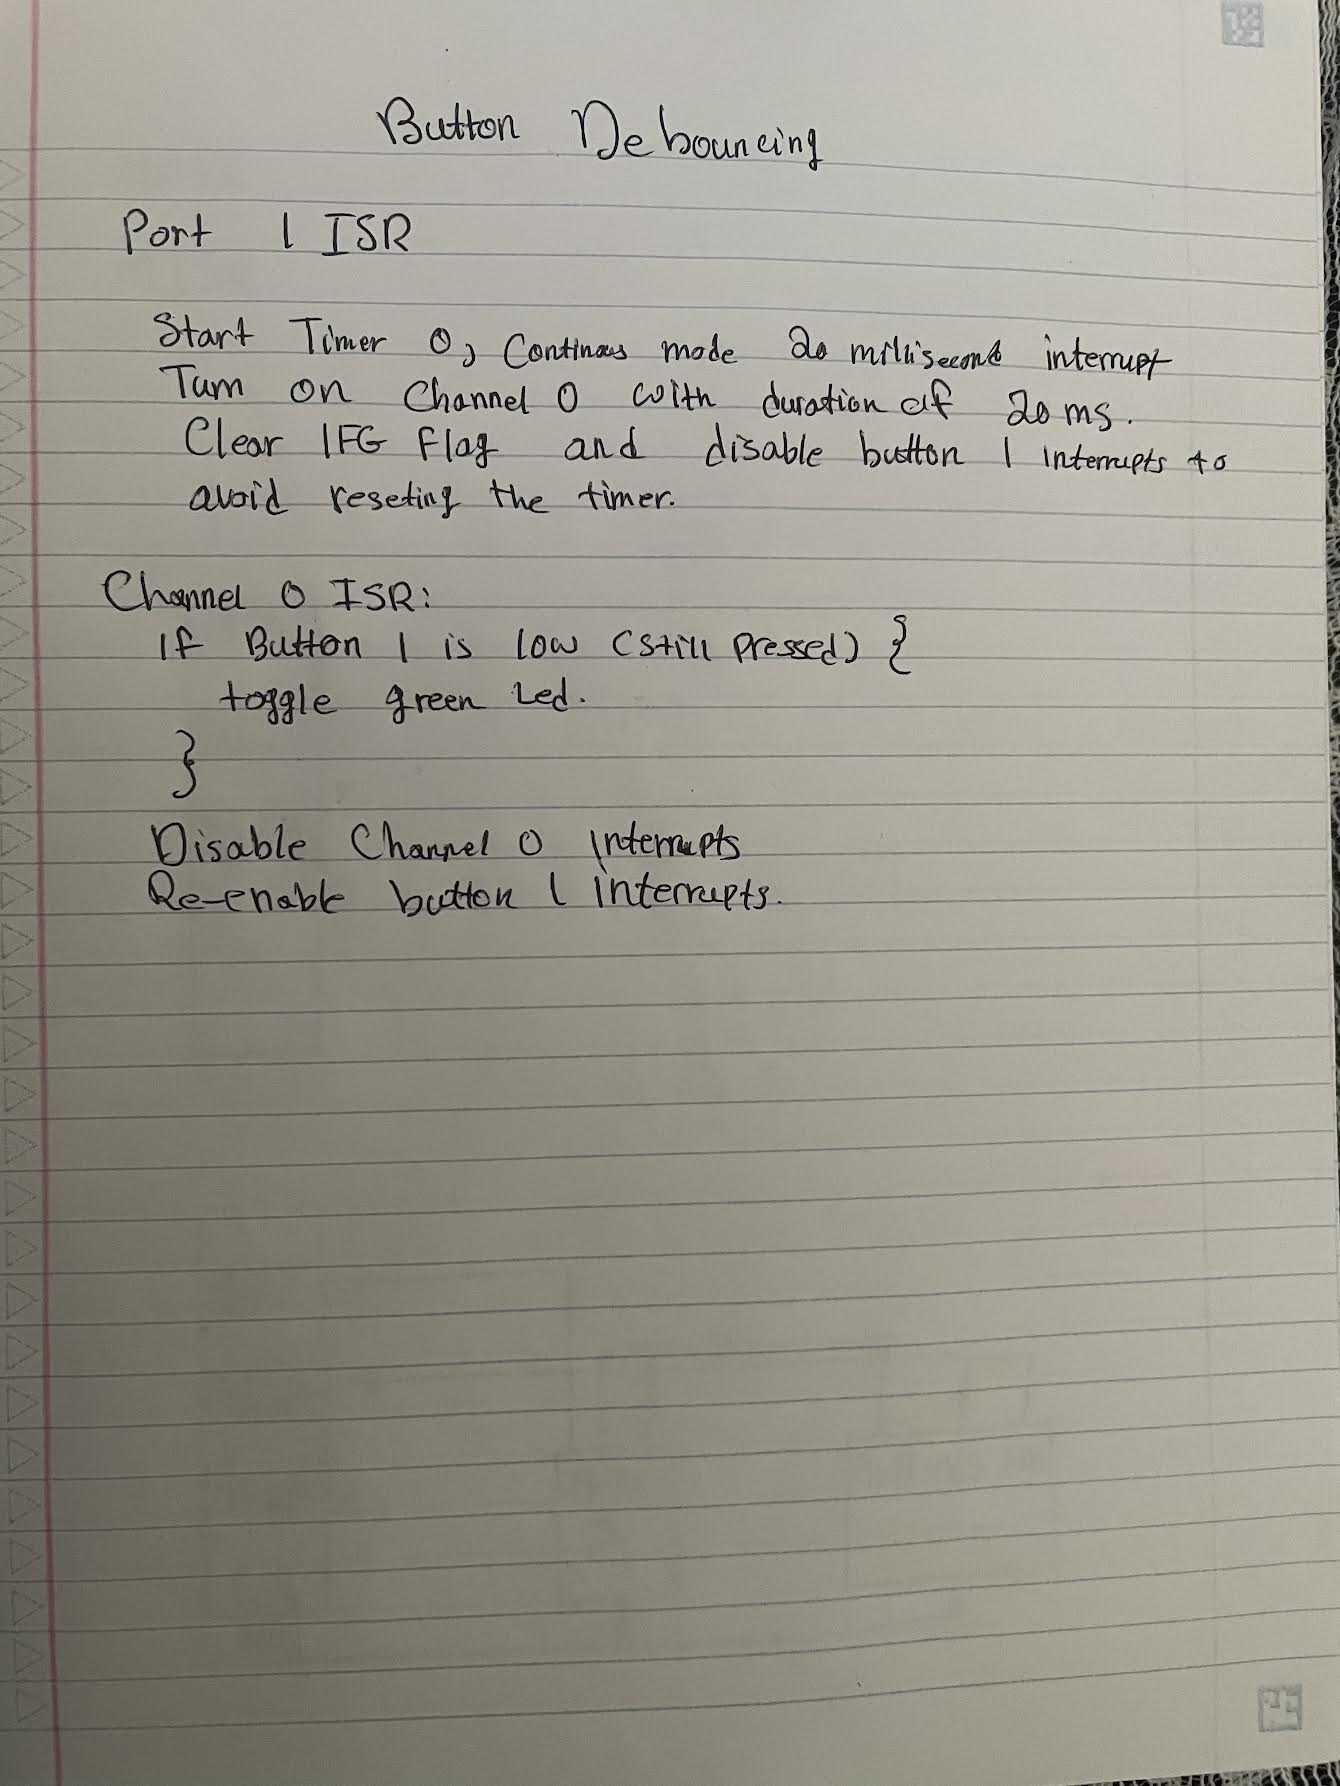 Button Debouncing
Port 1 ISR
Start Timer 0, Continous mode 20 millisecond interrupt
Turn on Channel 0 with duration of 20 ms.
Clear IFG flag and disable button 1 interrupts to
avoid reseting the timer.
Channel 0 ISR:
If Button 1 is low (still pressed) {
toggle green Led.
}
Disable Channel 0 interrupts
Re-enable button 1 interrupts.